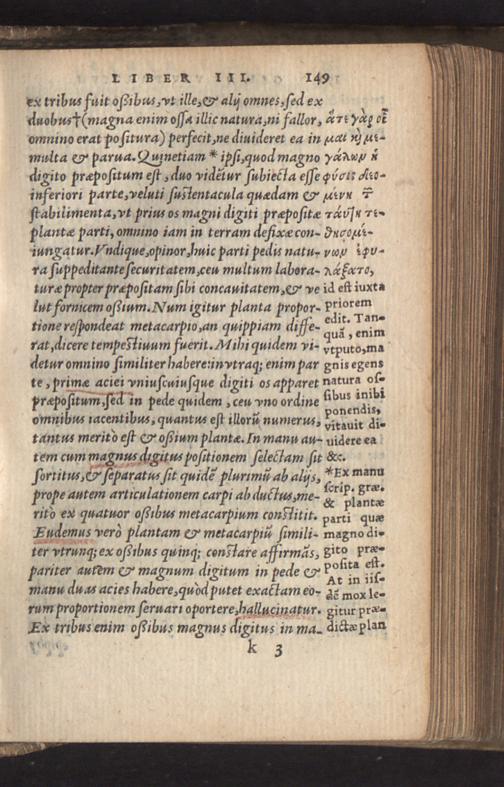 LIBER III. 149
ex tribus fuit oßibus, vt ille, & alij omnes, sed ex
duobus† (magna enim ossa illic natura, ni fallor,
omnino erat positura) perfecit, ne diuideret ea in
multa & parua. Quinetiam * ipsi, quod magno
digito præpositum est, duo vidētur subiecta esse
inferiori parte, veluti sustentacula quædam &
stabilimenta, vt prius os magni digiti præpositæ
plantæ parti, omnino iam in terram defixæ con-
iungatur. Vndique, opinor, huic parti pedis natu-
ra suppeditante securitatem, ceu multum labora-
turæ propter præpositam sibi concauitatem, & ve
lut fornicem oßium. Num igitur planta propor-
tione respondeat metacarpio, an quippiam diffe-
rat, dicere tempestiuum fuerit. Mihi quidem vi-
detur omnino similiter habere: in vtraq; enim par
te, primæ aciei vniuscuiusque digiti os apparet
præpositum, sed in pede quidem, ceu vno ordine
omnibus iacentibus, quantus est illorū numerus,
tantus meritò est & oßium plantæ. In manu au-
tem cum magnus digitus positionem selectam sit
sortitus, & separatus sit quidē plurimū ab alijs,
prope autem articulationem carpi ab ductus, me-
ritò ex quatuor oßibus metacarpium constitit.
Eudemus verò plantam & metacarpiū simili-
ter vtrunq; ex oßibus quinq; constare affirmās,
pariter autem & magnum digitum in pede &
manu duas acies habere, quòd putet exactam eo-
rum proportionem seruari oportere, hallucinatur.
Ex tribus enim oßibus magnus digitus in ma-
k 3
ἅτε γὰρ
γάλων
φύσις
ταύτῃ τε-
θησομέ-
νων ἐφυ-
λάξατο,
id est iuxta
priorem
edit. Tan-
quā, enim
vt puto, ma
gnis egens
natura os-
sibus inibi
ponendis,
vitauit di-
uidere ea
&c.
*Ex manu
scrip. græ.
& plantæ
parti quæ
magno di-
gito præ-
posita est.
At in iis-
dē mox le-
gitur præ-
dictæ plan